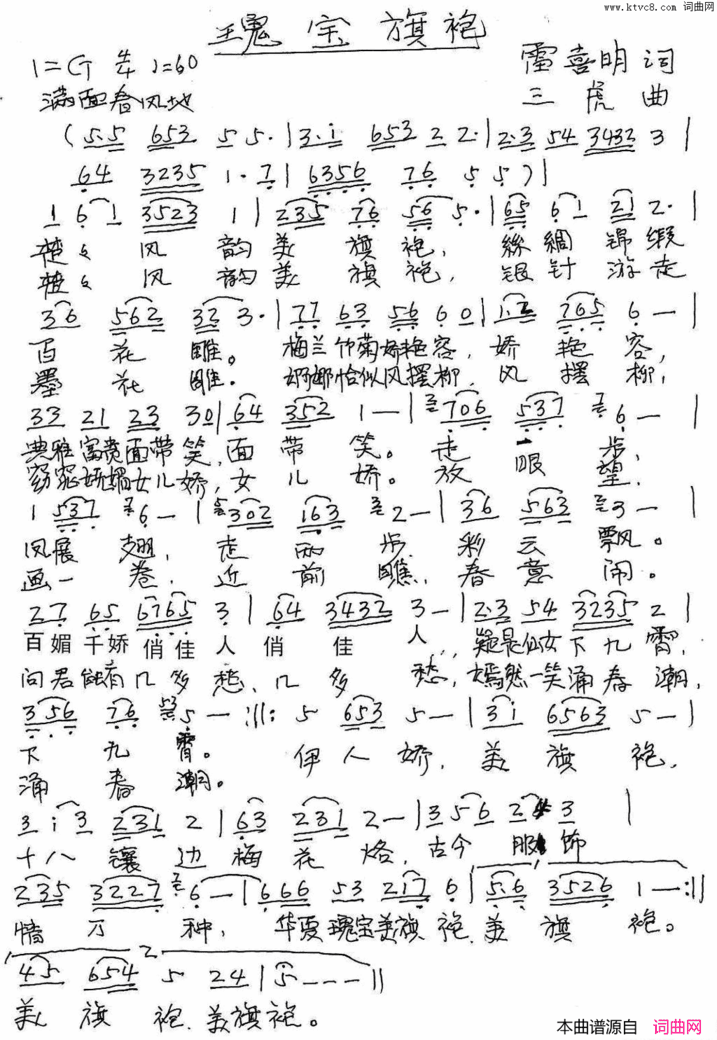 www.ktvc8.com 词曲网
瑰宝旗袍
1=G 4/4 ♩=60
雷喜明 词
满面春风地
三虎 曲
(5·5 653 5 5·|3·i 653 2 2·|2·3 54 3432 3|
64 3235 1·7|6356 76 5 5)|
1 61 3523 1|235 76 56 5·|65 61 21 2·|
楚楚风韵美旗袍，丝绸锦缎
楚楚风韵美旗袍，银针游走
36 562 32 3·|77 63 56 60|1·2 765 6—|
百花雕。梅兰竹菊娇艳容，娇艳容，
墨花雕。婀娜恰似风摆柳，风摆柳，
33 21 23 30|64 352 1—|706 537 6—|
典雅富贵面带笑，面带笑。走一步，
窈窕娇媚女儿娇，女儿娇。放眼望，
1 537 6—|302 163 2—|36 563 3—|
凤展翅，走两步，彩云飘。
画一卷，近前瞧，春意闹。
27 65 6765 3|64 3432 3—|2·3 54 3235 2|
百媚千娇俏佳人俏佳人，疑是仙女下九霄，
问君能有几多愁，几多愁，嫣然一笑涌春潮，
356 76 5—:||: 5 653 5—|3i 6563 5—|
下九霄。伊人娇，美旗袍，
涌春潮。
3 i3 231 2|63 231 2—|356 2 3|
十八镶边梅花烙，古今服饰
235 3227 6—|666 53 217 6|5·6 3526 1—:||
情万种，华夏瑰宝美旗袍，美旗袍。
2
45 654 5 24|5---||
美旗袍，美旗袍。
本曲谱源自 词曲网